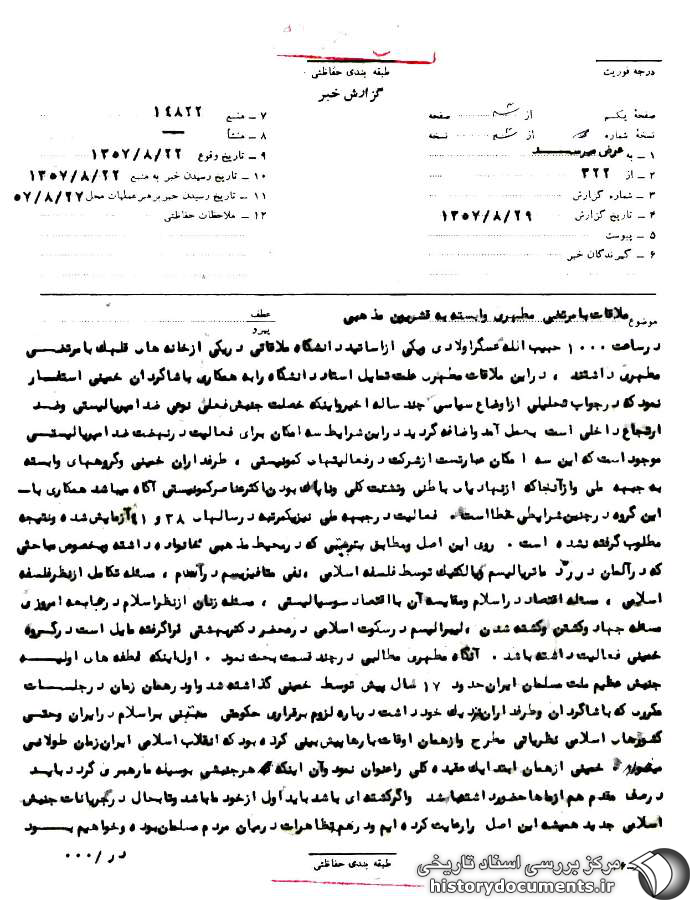 طبقه بندی حفاظتی
گزارش خبر
درجه فوریت
صفحهٔ یکم از صفحه
نسخهٔ شماره از نسخه
۱ ـ به عرض میرسد
۲ ـ از ۳۲۲
۳ ـ شماره گزارش
۴ ـ تاریخ گزارش ۱۳۵۷/۸/۲۹
۵ ـ پیوست
۶ ـ گیرندگان خبر
۷ ـ منبع ۱۴۸۲۲
۸ ـ منشأ
۹ ـ تاریخ وقوع ۱۳۵۷/۸/۲۲
۱۰ ـ تاریخ رسیدن خبر به منبع ۱۳۵۷/۸/۲۲
۱۱ ـ تاریخ رسیدن خبر برهبر عملیات محل ۵۷/۸/۲۷
۱۲ ـ ملاحظات حفاظتی
موضوع ملاقات با مرتضی مطهری وابسته به قشریون مذهبی
عطف
پیرو
در ساعت ۱۰۰۰ حبیب اله عسگراولادی ویکی از اساتید دانشگاه ملاقاتی در یکی از خانه های قلهک با مرتضی
مطهری داشتند ، در این ملاقات مطهری علت تمایل استاد دانشگاه را به همکاری با شاگردان خمینی استفسار
نمود که در جواب تحلیلی از اوضاع سیاسی چند ساله اخیر واینکه خصلت جنبش فعلی نوعی ضد امپریالیستی وضد
ارتجاع داخلی است بعمل آمد واضافه گردید در این شرایط سه امکان برای فعالیت در نهضت ضد امپریالیستی
موجود است که این سه امکان عبارتست از شرکت در فعالیتهای کمونیستی ، طرفداران خمینی وگروههای وابسته
به جبهه ملی واز آنجا که از تهادیاب باطنی وتشتت کلی وناپاک بودن اکثر عناصر کمونیستی آگاه میباشد همکاری با ـ
این گروه در چنین شرایطی خطا است . فعالیت در جبهه ملی نیز یکمرتبه در سالهای ۳۸ و ۴۱ آزمایش شده ونتیجه
مطلوب گرفته نشده است . روی این اصل ومطابق تربیتی که در محیط مذهبی خانواده داشته وبخصوص مباحثی
که در آلمان در رد ماتریالیسم دیالکتیک توسط فلسفه اسلامی ، نفی متافیزیسم در آنهم ، مسئله تکامل از نظر فلسفه
اسلامی ، مسئله اقتصاد در اسلام ومقایسه آن با اقتصاد سوسیالیستی ، مسئله زنان از نظر اسلام در جامعه امروزی
مسئله جهاد وکشتن وکشته شدن ، لیبرالیسم در سکوت اسلامی در محضر دکتر بهشتی فرا گرفته مایل است در گروه
خمینی فعالیت داشته باشد . آنگاه مطهری مطالبی در چند قسمت بحث نمود . اول اینکه نطفه های اولیه
جنبش عظیم ملت مسلمان ایران حدود ۱۷ سال پیش توسط خمینی گذاشته شد واو در همان زمان در جلسات
مکرری که با شاگردان وطرفداران نزدیک خود داشت درباره لزوم برقراری حکومتی مبتنی بر اسلام در ایران وحتی
کشورهای اسلامی نظریاتی مطرح واز همان اوقات بارها پیش بینی کرده بود که انقلاب اسلامی ایران زمان طولانی
میخواهد . خمینی از همان ابتدا یک عقیده کلی را عنوان نمود وآن اینکه هر جنبشی بوسیله ما رهبری گردد باید
در صف مقدم هم از ماها حضور داشته باشد واگر کشته ای باشد باید اول از خود ما باشد وتا بحال در جریانات جنبش
اسلامی جدید همیشه این اصل را رعایت کرده ایم ودر همه تظاهرات در میان مردم مسلمان بوده وخواهیم بود
در /۰۰۰
طبقه بندی حفاظتی
مرکز بررسی اسناد تاریخی
historydocuments.ir